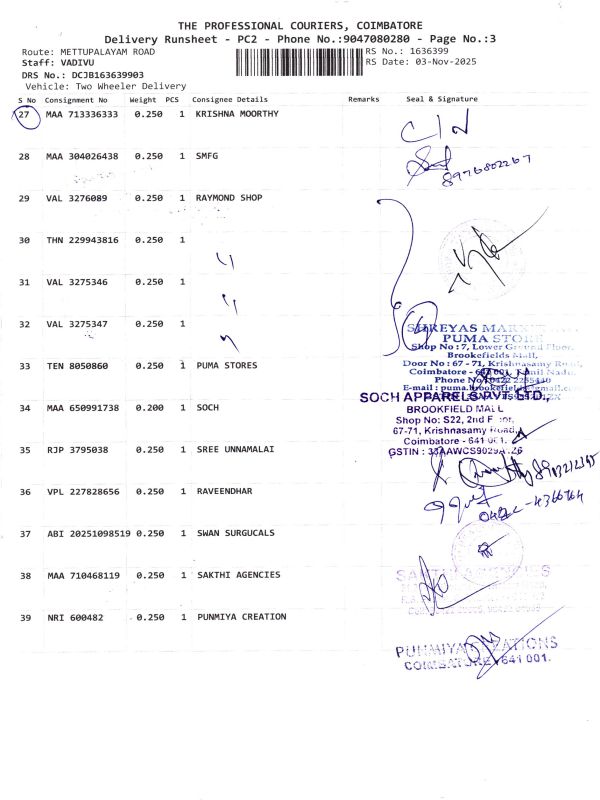 THE PROFESSIONAL COURIERS, COIMBATORE
Delivery Runsheet - PC2 - Phone No.:9047080280 - Page No.:3
Route: METTUPALAYAM ROAD RS No.: 1636399
Staff: VADIVU RS Date: 03-Nov-2025
DRS No.: DCJB163639903
Vehicle: Two Wheeler Delivery
S No Consignment No Weight PCS Consignee Details Remarks Seal & Signature
27 MAA 713336333 0.250 1 KRISHNA MOORTHY
C/N
28 MAA 304026438 0.250 1 SMFG
8976802267
29 VAL 3276089 0.250 1 RAYMOND SHOP
30 THN 229943816 0.250 1
31 VAL 3275346 0.250 1
32 VAL 3275347 0.250 1
SHREYAS
PUMA STORE
Shop No : 7, Lower Ground Floor,
Brookefields Mall,
Door No : 67 - 71, Krishnasamy Road,
Coimbatore - 641 001, Tamil Nadu.
33 TEN 8050860 0.250 1 PUMA STORES
Phone No
E-mail :
SOCH APPARELS PVT LTD.,
34 MAA 650991738 0.200 1 SOCH
BROOKFIELD MALL
Shop No: S22, 2nd Floor,
67-71, Krishnasamy Road,
Coimbatore - 641 001.
35 RJP 3795038 0.250 1 SREE UNNAMALAI
GSTIN :
36 VPL 227828656 0.250 1 RAVEENDHAR
37 ABI 20251098519 0.250 1 SWAN SURGUCALS
38 MAA 710468119 0.250 1 SAKTHI AGENCIES
39 NRI 600482 0.250 1 PUNMIYA CREATION
PUNMIYA CREATIONS
COIMBATORE - 641 001.